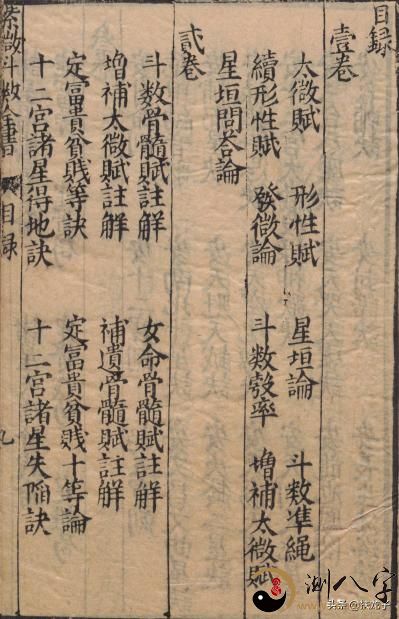 目録
壹卷
太微賦 形性賦 星垣論 斗数準繩
續形性賦 發微論 斗数彀率 增補太微賦
星垣問答論
貳卷
斗数骨髓賦註解 女命骨髓賦註解
增補太微賦註解 補遺骨髓賦註解
定富貴貧賤等訣 定富貴貧賤十等論
十二宮諸星得地訣 十二宮諸星失陷訣
紫微斗数全書 目録 九
测八字
头条